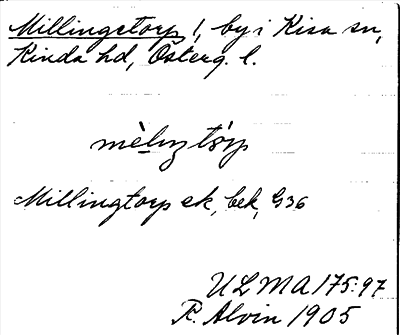 Millingstorp 1, by i Kisa sn,
Kinda hd, Österg. l.
Millingtorp ek, bek, G36
ULMA 175:97
R. Alvin 1905